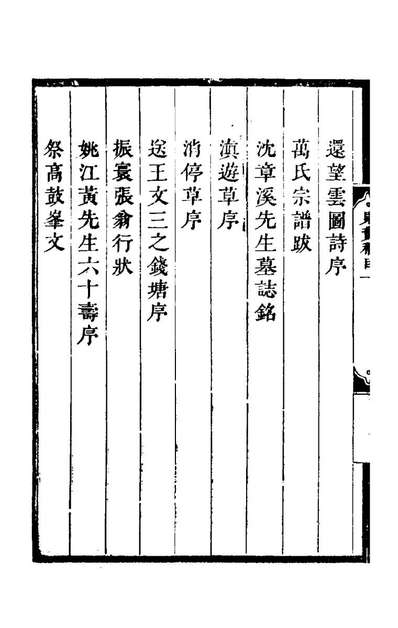 還望雲圖詩序
萬氏宗譜跋
沈章溪先生墓誌銘
滇遊草序
消停草序
送王文三之錢塘序
振寰張翁行狀
姚江黃先生六十壽序
祭高鼓峯文